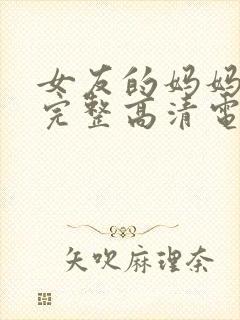 女友的妈妈
完整高清电
矢吹麻理奈